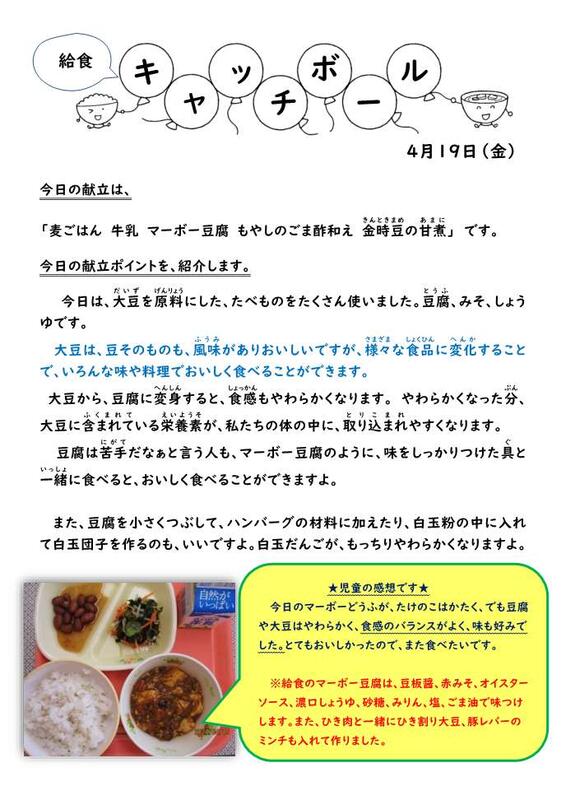 給食
キャッチボール
4月19日(金)
今日の献立は、
「麦ごはん 牛乳 マーボー豆腐 もやしのごま酢和え 金時豆の甘煮」 です。
今日の献立ポイントを、紹介します。
今日は、大豆を原料にした、たべものをたくさん使いました。豆腐、みそ、しょう
ゆです。
大豆は、豆そのものも、風味がありおいしいですが、様々な食品に変化すること
で、いろんな味や料理でおいしく食べることができます。
大豆から、豆腐に変身すると、食感もやわらかくなります。 やわらかくなった分、
大豆に含まれている栄養素が、私たちの体の中に、取り込まれやすくなります。
豆腐は苦手だなぁと言う人も、マーボー豆腐のように、味をしっかりつけた具と
一緒に食べると、おいしく食べることができますよ。
また、豆腐を小さくつぶして、ハンバーグの材料に加えたり、白玉粉の中に入れ
て白玉団子を作るのも、いいですよ。白玉だんごが、もっちりやわらかくなりますよ。
★児童の感想です★
今日のマーボーどうふが、たけのこはかたく、でも豆腐
や大豆はやわらかく、食感のバランスがよく、味も好みで
した。とてもおいしかったので、また食べたいです。
※給食のマーボー豆腐は、豆板醤、赤みそ、オイスター
ソース、濃口しょうゆ、砂糖、みりん、塩、ごま油で味つけ
します。また、ひき肉と一緒にひき割り大豆、豚レバーの
ミンチも入れて作りました。
自然が
いっぱい